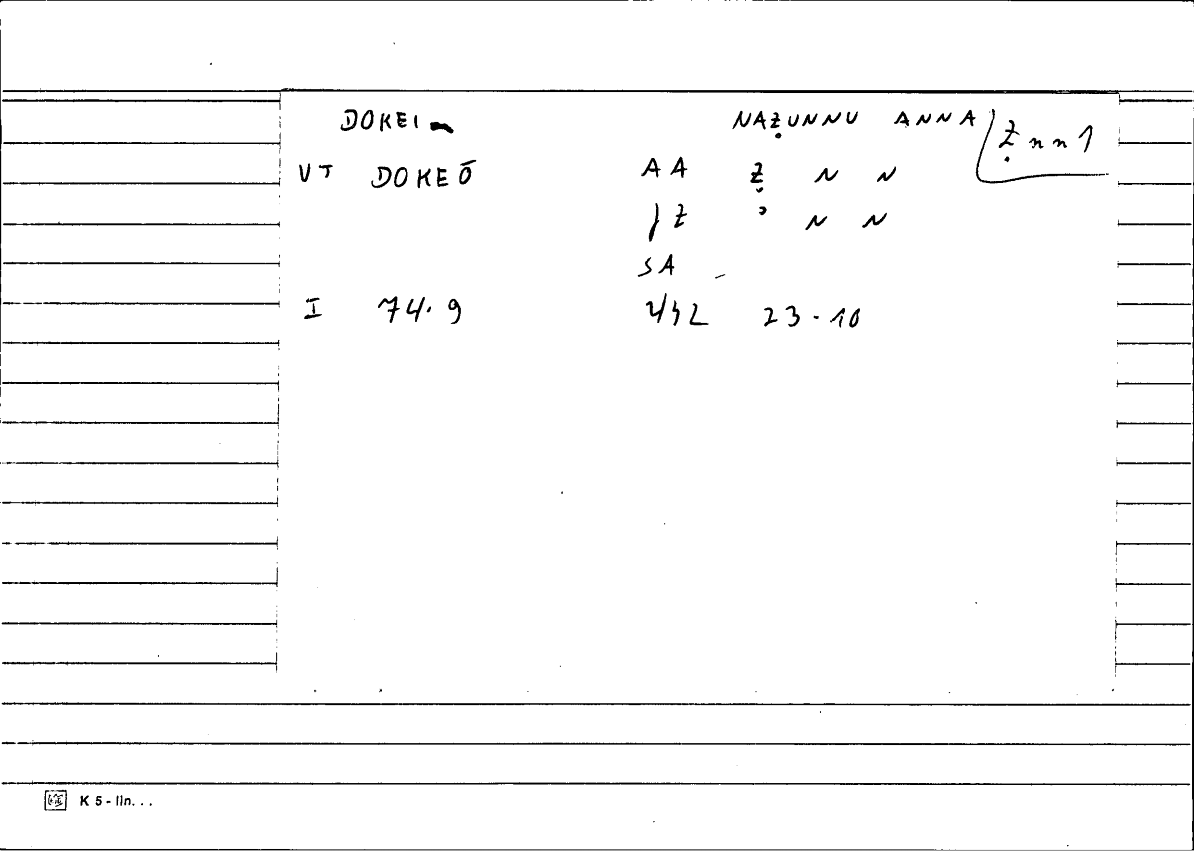 DOKEI NAẒUNNU ANNA Ẓ n n 1
VT DOKEŌ AA Ẓ N N
Z N N
SA -
I 74.9 23-10
K 5 - lin. . .